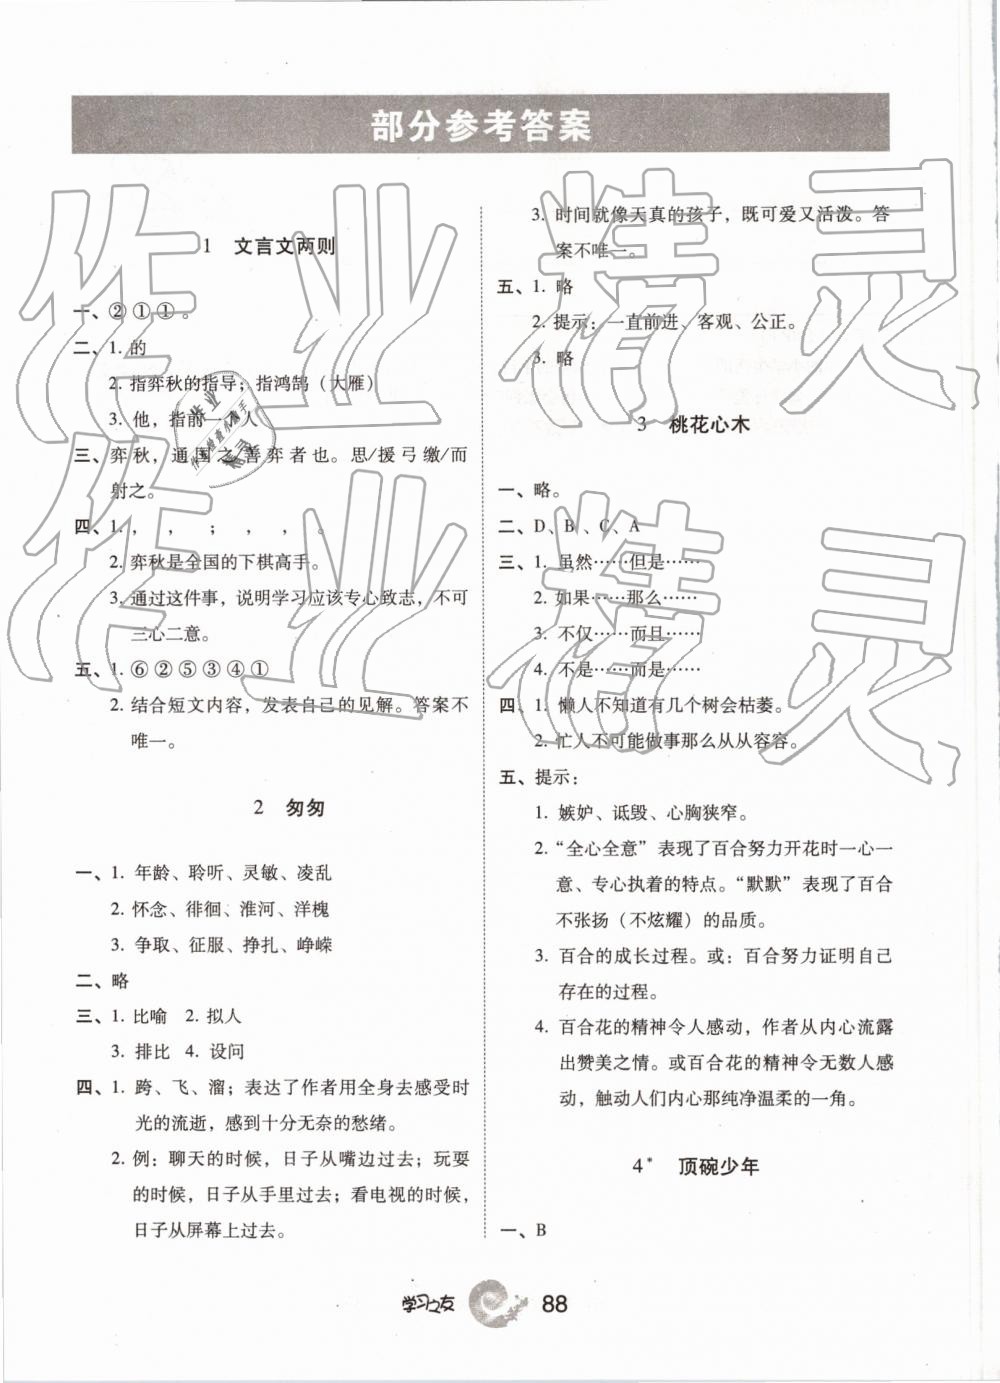 部分参考答案
1 文言文两则
一、②①①。
二、1. 的
2. 指弈秋的指导；指鸿鹄（大雁）
3. 他，指前一个人
三、弈秋，通国之善弈者也。思/援弓缴/而
射之。
四、1. ， ， ； ， ， 。
2. 弈秋是全国的下棋高手。
3. 通过这件事，说明学习应该专心致志，不可
三心二意。
五、1. ⑥②⑤③④①
2. 结合短文内容，发表自己的见解。答案不
唯一。
2 匆匆
一、1. 年龄、聆听、灵敏、凌乱
2. 怀念、徘徊、淮河、洋槐
3. 争取、征服、挣扎、峥嵘
二、略
三、1. 比喻 2. 拟人
3. 排比 4. 设问
四、1. 跨、飞、溜；表达了作者用全身去感受时
光的流逝，感到十分无奈的愁绪。
2. 例：聊天的时候，日子从嘴边过去；玩耍
的时候，日子从手里过去；看电视的时候，
日子从屏幕上过去。
3. 时间就像天真的孩子，既可爱又活泼。答
案不唯一。
五、1. 略
2. 提示：一直前进、客观、公正。
3. 略
3 桃花心木
一、略。
二、D、B、C、A
三、1. 虽然……但是……
2. 如果……那么……
3. 不仅……而且……
4. 不是……而是……
四、1. 懒人不知道有几个树会枯萎。
2. 忙人不可能做事那么从从容容。
五、提示：
1. 嫉妒、诋毁、心胸狭窄。
2. “全心全意”表现了百合努力开花时一心一
意、专心执着的特点。“默默”表现了百合
不张扬（不炫耀）的品质。
3. 百合的成长过程。或：百合努力证明自己
存在的过程。
4. 百合花的精神令人感动，作者从内心流露
出赞美之情。或百合花的精神令无数人感
动，触动人们内心那纯净温柔的一角。
4* 顶碗少年
一、B
学习之友 88
作业精灵
作业精灵